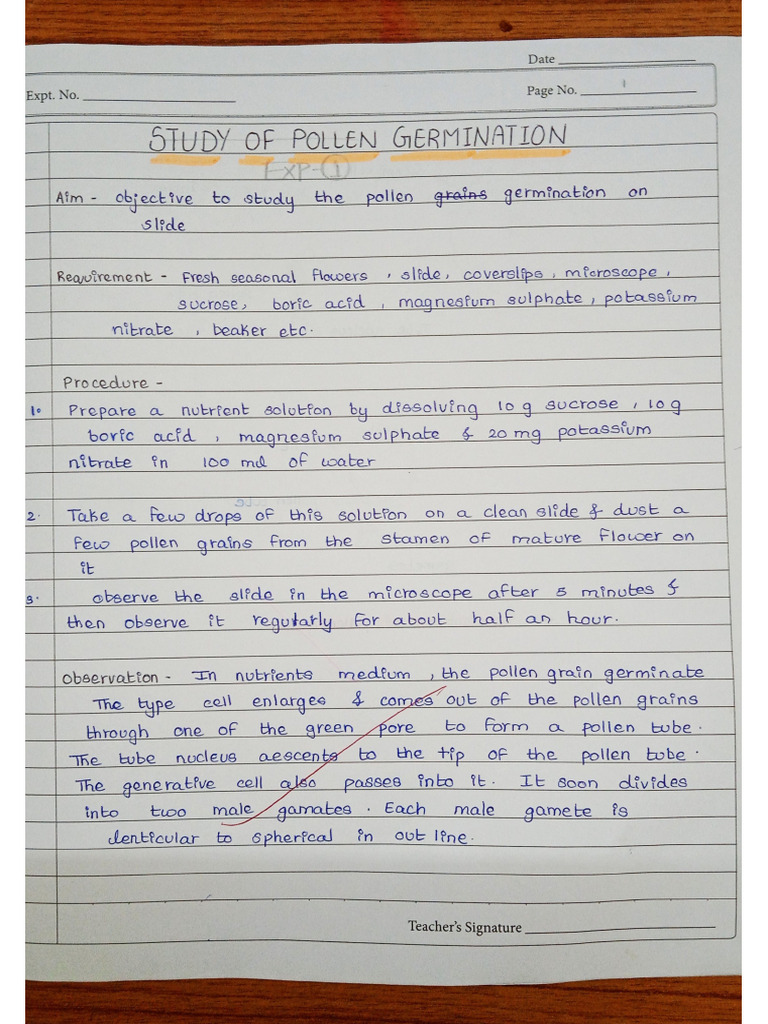 Date
Expt. No.
Page No. 1
STUDY OF POLLEN GERMINATION
EXP-1
Aim - objective to study the pollen grains germination on
slide
Requirement - Fresh seasonal flowers , slide, coverslips, microscope,
sucrose, boric acid , magnesium sulphate, potassium
nitrate , beaker etc.
Procedure -
1. Prepare a nutrient solution by dissolving 10 g sucrose, 10 g
boric acid , magnesium sulphate & 20 mg potassium
nitrate in 100 ml of water
2. Take a few drops of this solution on a clean slide & dust a
few pollen grains from the stamen of mature flower on
it
3. observe the slide in the microscope after 5 minutes &
then observe it regularly for about half an hour.
Observation - In nutrients medium , the pollen grain germinate
The type cell enlarges & comes out of the pollen grains
through one of the green pore to form a pollen tube.
The tube nucleus aescents to the tip of the pollen tube.
The generative cell also passes into it. It soon divides
into two male gamates. Each male gamete is
lenticular to spherical in out line.
Teacher's Signature